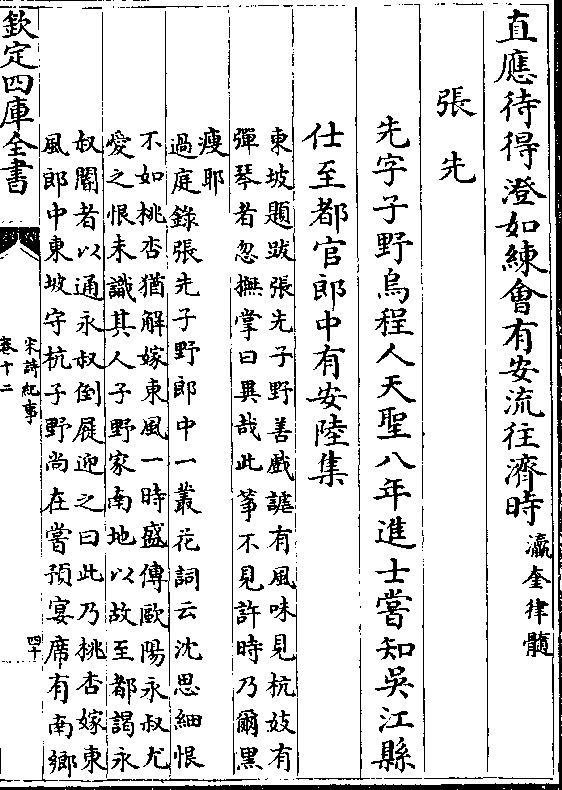 直應待得澄如練會有安流往濟時瀛奎律髓
張先
先字子野烏程人天聖八年進士嘗知吳江縣
仕至都官郎中有安陸集
東坡題跋張先子野善戲謔有風味見杭妓有
彈琴者忽撫掌曰異哉此箏不見許時乃爾黑
瘦耶
過庭錄張先子野郎中一叢花詞云沈思細恨
不如桃杏猶解嫁東風一時盛傳歐陽永叔尤
愛之恨未識其人子野家南地以故至都謁永
叔閽者以通永叔倒屣迎之曰此乃桃杏嫁東
風郎中東坡守杭子野尚在嘗預宴席有南鄉
欽定四庫全書
宋詩紀事
卷十二
四十